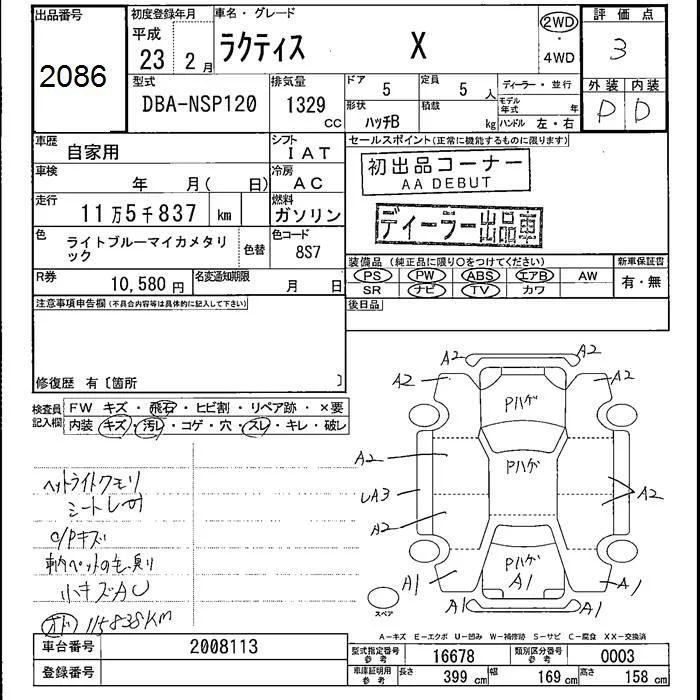 出品番号 初度登録年月 車名・グレード 評価点
2086
平成 23 2月
ラクティス X
2WD・4WD
3
型式 排気量 ドア 定員 ディーラー・並行 外装 内装
DBA-NSP120 1329 CC 5 5人 D D
形状 積載 モデル年式 年
ハッチB kg ハンドル 左・右
車歴 シフト セールスポイント(正常に機能するものに限ります)
自家用 IAT
初出品コーナー
AA DEBUT
車検 冷房
年 月( 日) AC
走行 燃料
11万5千837 km ガソリン
ディーラー出品車
色 色替 色コード
ライトブルーマイカメタリ
ック
8S7
装備品 (純正品に限り○をつけてください) 新車保証書
R券 10,580円 名変通知期限 月 日
PS PW ABS エアB AW 有・無
SR ナビ TV カワ
注意事項申告欄(不具合内容等は具体的に記入して下さい) 後日品
修復歴 有〔箇所 〕
検査員記入欄
FW キズ・飛石・ヒビ割・リペア跡・×要
内装 キズ・汚レ・コゲ・穴・スレ・キレ・破レ
ヘットライトクモリ
C/Pキズ
小キズAU
オド 115838KM
A2 A2
A2 A2
Pハゲ
A2
Pハゲ
LA3 A2
A2
Pハゲ
A1 A1 A1
A1 A1
スペア
A-キズ E-エクボ U-凹み W-補修跡 S-サビ C-腐食 XX-交換済
車台番号 2008113
登録番号
型式指定番号参考 16678 類別区分番号参考 0003
車庫証明用参考 長さ 399 cm 幅 169 cm 高さ 158 cm